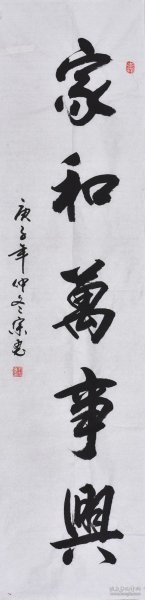 家和萬事興
庚子年仲冬宗光